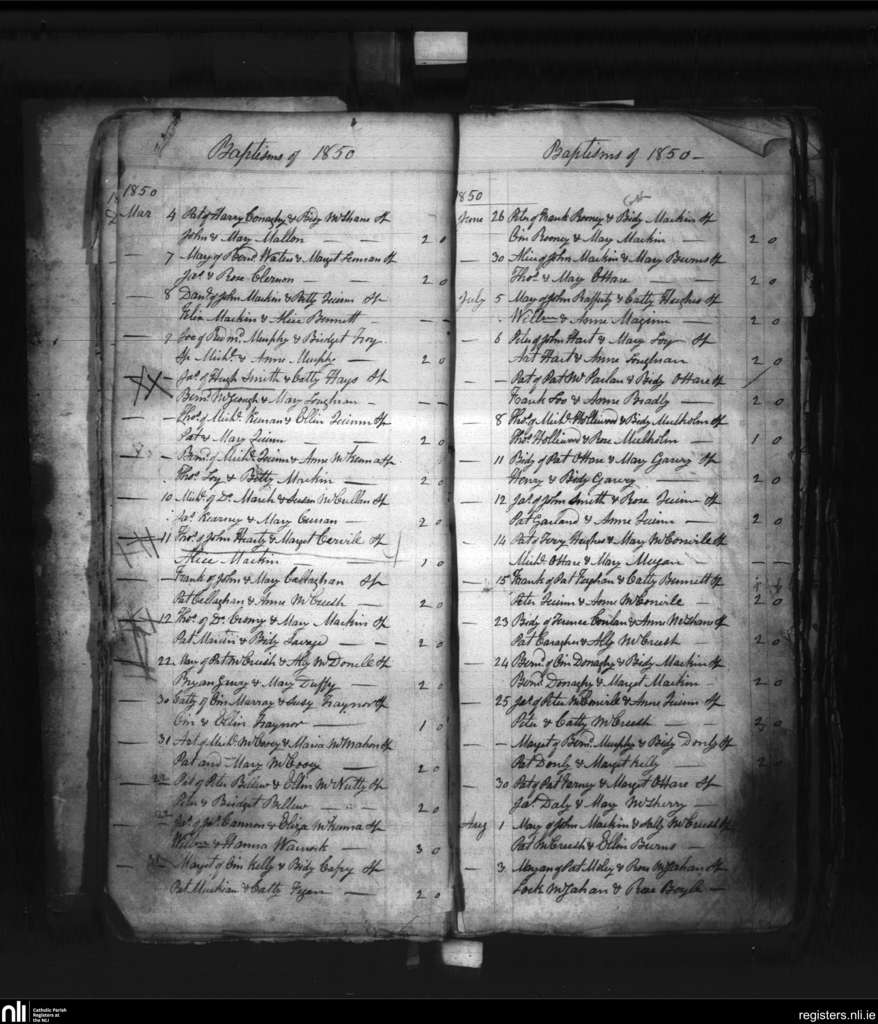 Baptisms of 1850
1850
Mar 4 Pat of Harry Conaghy & Bidy McShane Sp
John & Mary Mallon — — 2 0
7 Mary of Bernd. Waters & Margt Lennan Sp
Jas. & Rose Clernon — 2 0
8 Danl. of John Mackin & Betty Quinn Sp
Felix Mackin & Alice Bennett — —
— 9 of Redmd. Murphy & Bridget Foy
Sp Michl. & Anne Murphy — 2 0
— Jas. of Hugh Smith & Catty Hays Sp
Bernd. McGeough & Mary Loughran — — —
— Thos. of Michl. Keenan & Ellin Quinn Sp
Pat & Mary Quinn — 2 0
— Bernd. of Michl. Quinn & Anne McKenna Sp
Thos. Foy & Betty Mackin — 2 0
— 10 Michl. of & Susan McCullan Sp
Jas. Kearney & Mary Curran — 2 0
11 Thos. of John Hearty & Margt Cervile Sp
Alice Mackin — 1 0
— Frank of John & Mary Callaghan Sp
Pat Callaghan & Anne McCreesh — 2 0
12 Thos. of & Mary Mackin Sp
Pat Mackin & Bidy Savage — 2 0
22 Mary of Pat McCreesh & Ally McDonell Sp
Bryan & Mary Duffy — 2 0
— 30 Catty of Murray & Susy Traynor Sp
& Ellin Traynor — 1 0
— 31 Art of Michl. McCooey & Maria McMahon Sp
Pat and Mary McCooey — 2 0
— Pat of Peter Bellew & Ellin McNulty Sp
Peter & Bridget Bellew — 2 0
— Jas. of Jas. Cannon & Eliza McKenna Sp
Willm & Hanna Warnock — 3 0
— Margt of Kelly & Bidy Sp
Pat & Catty Fegan — 2 0
Baptisms of 1850 —
1850
June 26 Peter of Frank Rooney & Bidy Mackin Sp
Rooney & Mary Mackin — 2 0
— 30 Alice of John Mackin & Mary Burns Sp
Thos. & Mary OHare — 2 0
July 5 Mary of John Rafferty & Catty Hughes Sp
Willm & Anne Maginn — 2 0
— 6 Peter of John Hart & Mary Foy Sp
Art Hart & Anne Loughran 2 0
— Pat of Pat McParlan & Bidy OHare Sp
Frank & Anne Bradly — 2 0
— 8 Thos. of Michl. Holliwood & Bidy Mulholm Sp
Thos. Holliwood & Rose Mulholm — 1 0
— 11 Bidy of Pat OHare & Mary Garvy Sp
Henry & Bidy Garvey — 2 0
— 12 Jas. of John Smith & Rose Quinn Sp
Pat Garland & Anne Quinn — 2 0
— 14 Pat of Terry Hughes & Mary McConvile Sp
Michl. OHare & Mary — — —
— 15 Frank of Pat Feighan & Catty Bennett Sp
Peter Quinn & Anne McConvile — 2 0
— 23 Bidy of Terence Conlan & Anne McShane Sp
Pat Caragher & Ally McCreesh — 2 0
— 24 Bernd. of Donaghy & Bidy Mackin Sp
Bernd. Donaghy & Margt Mackin — 2 0
— 25 Jas. of Peter McConvile & Anne Quinn Sp
Peter & Catty McCreesh — — 2 0
— — Margt of Bernd. Murphy & Bidy Donly Sp
Pat Donly & Margt Kelly — 2 0
— 30 Pat of Pat & Margt OHare Sp
Jas. Daly & Mary McSherry —
Aug 1 Mary of John Mackin & Sally McCreesh Sp
Pat McCreesh & Ellin Burns —
— 3 Maryan of Pat & Rose McGahan Sp
McGahan & Rose Boyle —
nli
Catholic Parish
Registers at
the NLI
registers.nli.ie